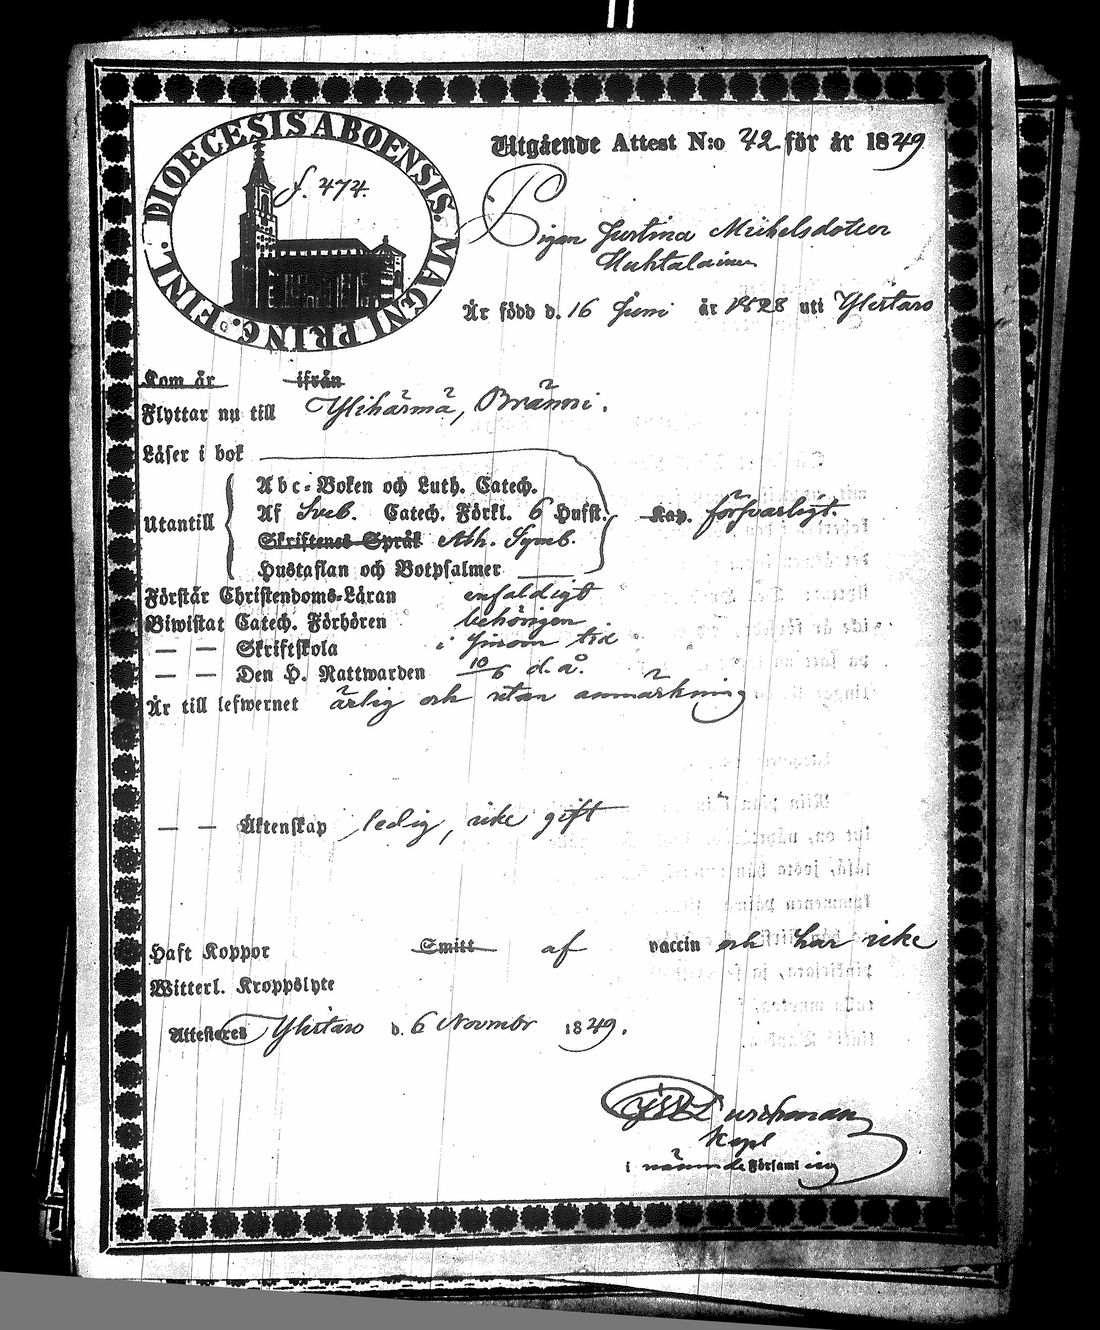 DIOECESIS ABOENSIS. MAGNI PRINC. FINL.
f. 474.
Utgående Attest N:o 42 för år 1849
Pigan Justina Michelsdotter
Huhtalainen
Är född d. 16 Juni år 1828 uti Ylistaro
Kom år ifrån
Flyttar nu till Ylihärmä, Bränni.
Läser i bok
Abc-Boken och Luth. Catech.
Utantill Af Sveb. Catech. Förkl. 6 Hufst. Kap. försvarligt.
Skriftenes Språk Ath. Symb.
Hustaflan och Botpsalmer
Förstår Christendoms-Läran enfaldigt
Biwistat Catech. Förhören behörigen
— — Skriftskola i sinom tid
— — Den H. Nattwarden 10/6 d. å.
Är till lefwernet ärlig och utan anmärkning
— — Äktenskap ledig, icke gift
Haft Koppor Smitt af vaccin och har icke
Witterl. Kroppslyte
Attesteres Ylistaro d. 6 Novembr 1849.
Kapl
i nämnde Församling